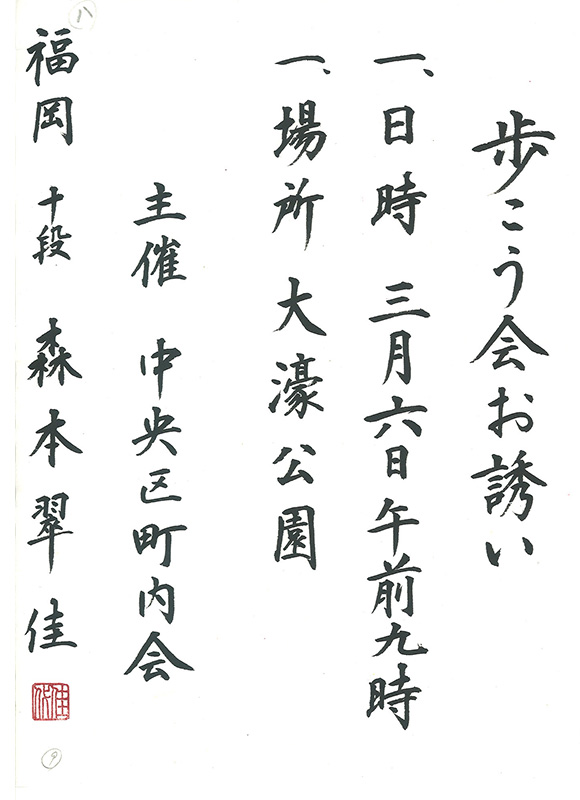 歩こう会お誘い
一、日時 三月六日午前九時
一、場所 大濠公園
主催 中央区町内会
福岡 十段 森本翠佳
八
9